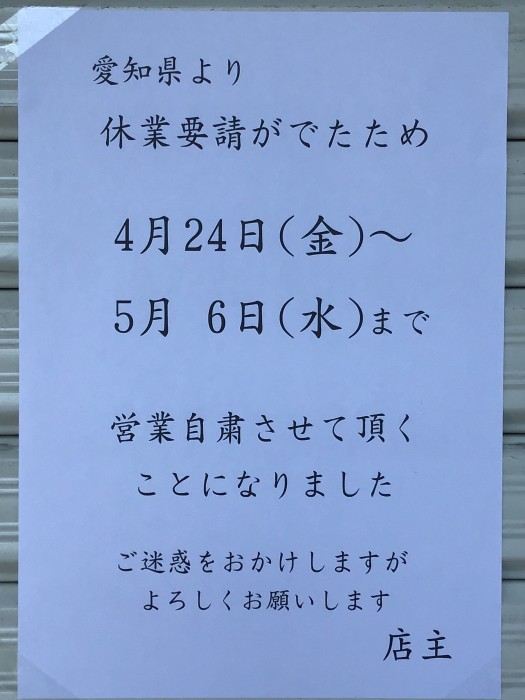 愛知県より
休業要請がでたため
4月24日(金)～
5月 6日(水)まで
営業自粛させて頂く
ことになりました
ご迷惑をおかけしますが
よろしくお願いします
店主